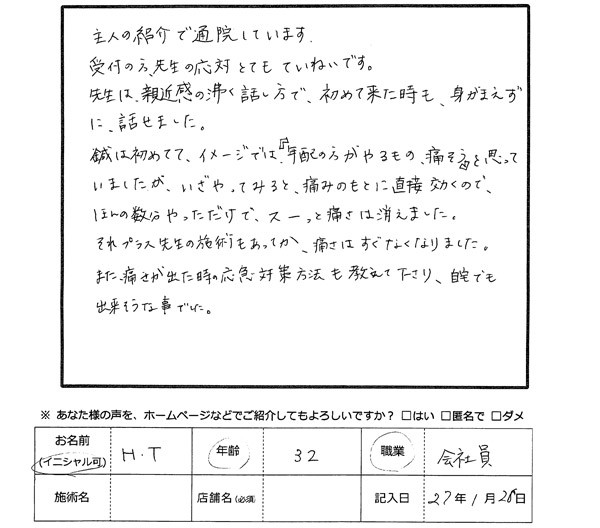 主人の紹介で通院しています.
受付の方、先生の応対とてもていねいです。
先生は、親近感の沸く話し方で、初めて来た時も、身がまえず
に、話せました。
鍼は初めてで、イメージでは、『年配の方がやるもの、痛そう』と思って
いましたが、いざやってみると、痛みのもとに直接効くので、
ほんの数分やっただけで、スーっと痛さは消えました。
それプラス先生の施術もあってか、痛さはすぐなくなりました。
また痛さが出た時の応急対策方法も教えて下さり、自宅でも
出来そうな事でした。
※ あなた様の声を、ホームページなどでご紹介してもよろしいですか? □はい □匿名で □ダメ
お名前 (イニシャル可) H.T 年齢 32 職業 会社員
施術名 店舗名(必須) 記入日 27年1月28日